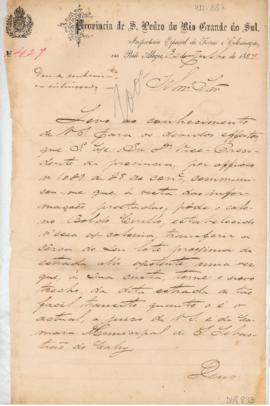 Provincia de S. Pedro do Rio Grande do Sul.
Inspectoria Especial de Terras e Colonisação,
em Porto Alegre, de de 188
Nº 427
Illmo. Snr.
Levo ao conhecimento
de V. S. para os devidos effeitos
que S. Exc. Snr. Dr. Vice-Presi-
dente da provincia, por officio
nº de 28 do corrte., communi-
cou-me que, á vista das infor-
mações prestadas, póde o colo-
no estabelecido
n'essa ex-colonia transferir a
cêrca de seu lote proximo da
estrada uma vez
que á sua custa torne o novo
trecho da dita estrada de tão
facil transito quanto o é o
actual, a juizo de V. S. e da Ca-
mara Municipal de S. Sebas-
tião do Cahy.
Deus